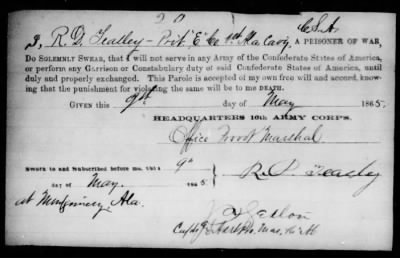 20
I, R. D. Teasley - Prvt "E" Co 1st Ala Cavy C.S.A. A PRISONER OF WAR,
DO SOLEMNLY SWEAR, that I will not serve in any Army of the Confederate States of America,
or perform any Garrison or Constabulary duty of said Confederate States of America, until
duly and properly exchanged. This Parole is accepted of my own free will and accord, knowing
that the punishment for violating the same will be to me DEATH.
GIVEN this 9th day of May 1865
HEADQUARTERS 16th ARMY CORPS.
Office Provost Marshal.
Sworn to and Subscribed before me, this 9th
R. D. Teasley
day of May. 1865.
at Montgomery, Ala.
Capt &